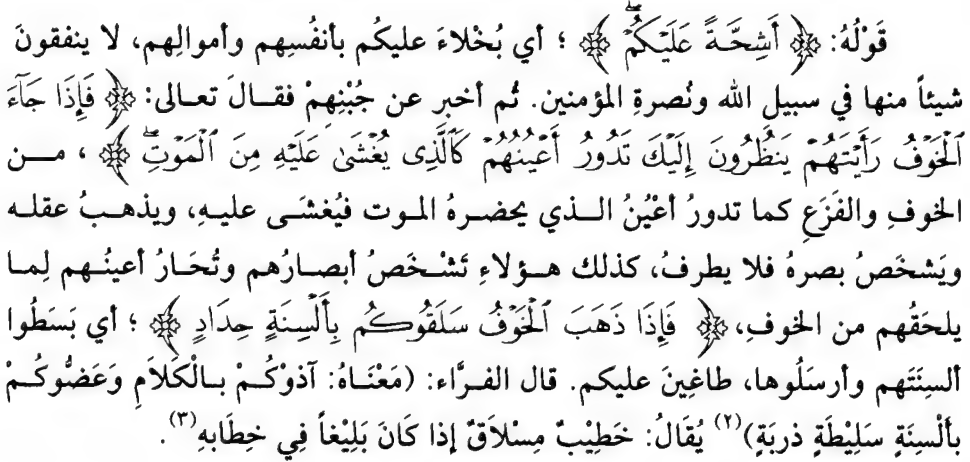 قَوْلُهُ: ﴿ أَشِحَّةً عَلَيْكُمْ ﴾ ؛ أي بُخْلاءَ عليكُم بأنفُسِهم وأموالِهم، لا ينفقونَ
شيئاً منها في سبيلِ الله ونُصرةِ المؤمنين. ثُم أخبر عن جُبْنِهِمْ فقـالَ تعـالى: ﴿ فَإِذَا جَآءَ
ٱلْخَوْفُ رَأَيْتَهُمْ يَنظُرُونَ إِلَيْكَ تَدُورُ أَعْيُنُهُمْ كَٱلَّذِى يُغْشَىٰ عَلَيْهِ مِنَ ٱلْمَوْتِۖ ﴾ ، مـن
الخوفِ والفَزَعِ كما تدورُ أعْيُنُ الـذي يحضـرهُ المـوت فيُغشَـى عليـهِ، ويذهـبُ عقلـه
ويَشخَصُ بصرهُ فلا يطرفُ، كذلك هـؤلاءِ تَشْـخَصُ أبصـارُهم وتُحَـارُ أعينُـهم لِمـا
يلحَقُهم من الخوفِ، ﴿ فَإِذَا ذَهَبَ ٱلْخَوْفُ سَلَقُوكُم بِأَلْسِنَةٍ حِدَادٍ ﴾ ؛ أي بَسَطُوا
ألسِنَتَهم وأرسَلُوها، طاغِينَ عليكم. قال الفـرَّاء: (مَعْنَـاهُ: آذوْكُـمْ بـالْكَلاَمِ وَعَضُّوكُـمْ
بألْسِنَةٍ سَلِيْطَةٍ ذربَةٍ)(٢) يُقَالُ: خَطِيْبٌ مِسْلاَقٌ إذا كَانَ بَلِيْغاً فِي خِطَابهِ(٣).